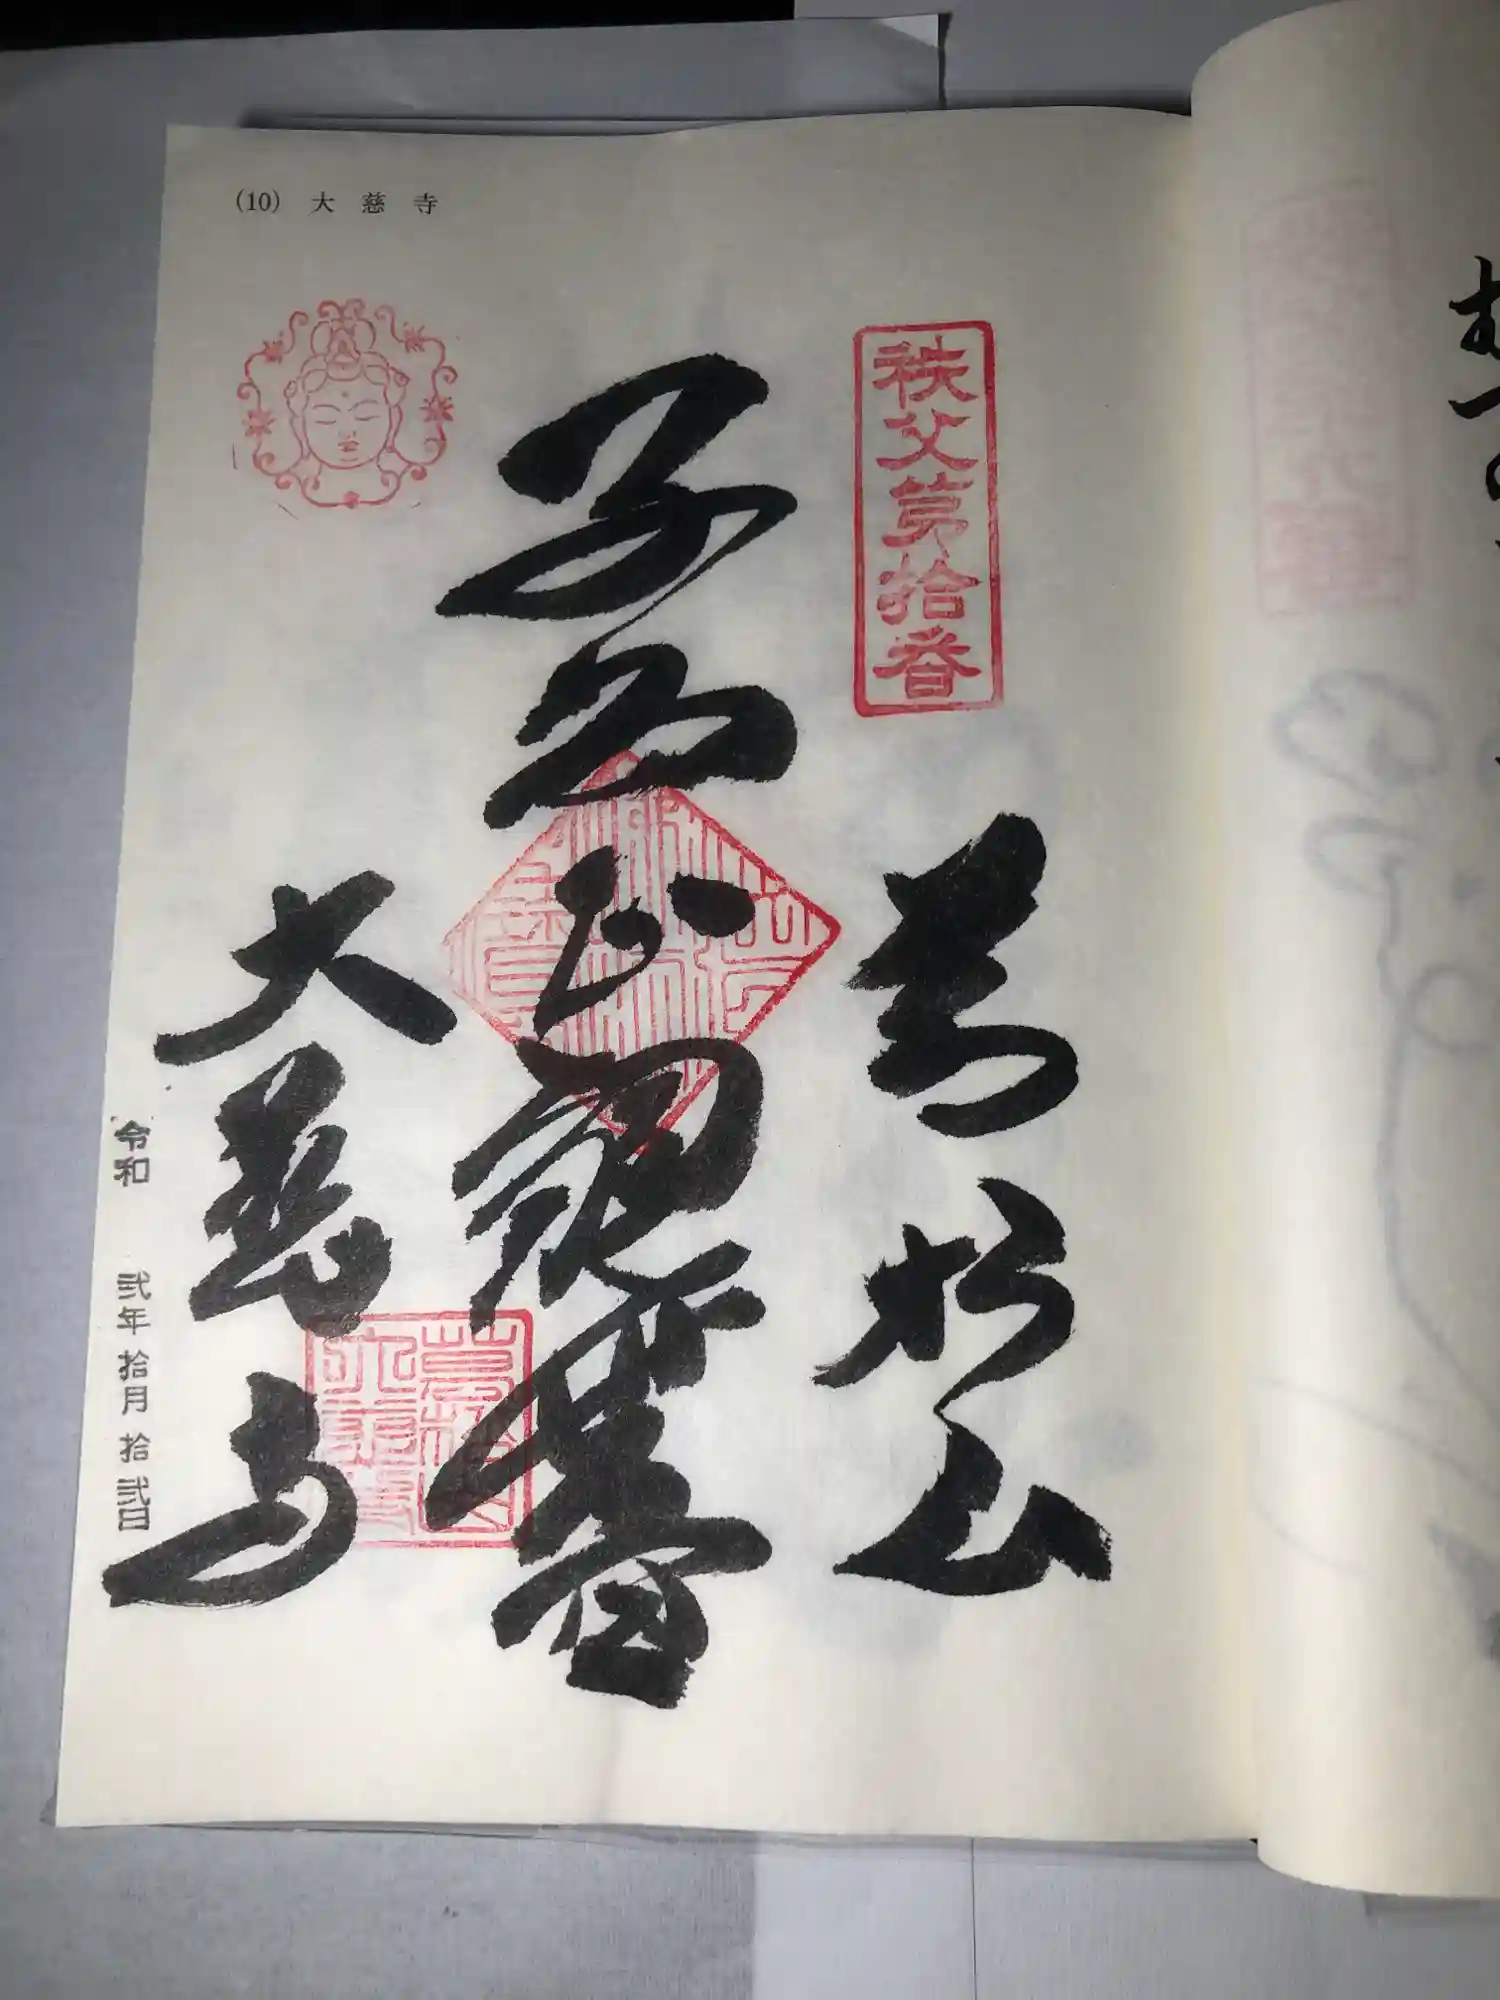 (10) 大慈寺
秩父第拾番
萬松山
子安正観世音
大慈寺
令和 弐年 拾月 拾弐日